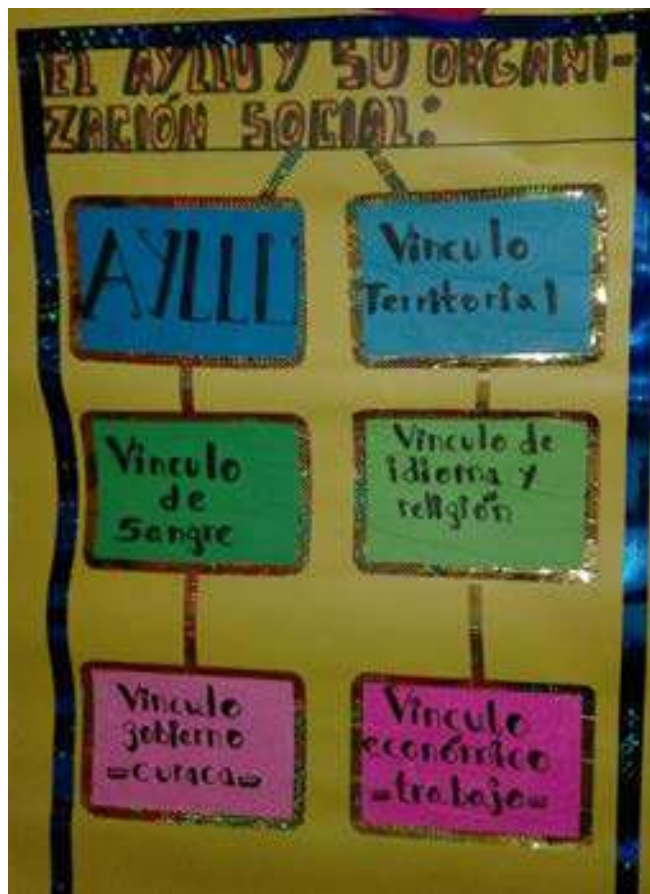 EL AYLLU Y SU ORGANI-
ZACIÓN SOCIAL:
AYLLU
Vinculo
Territorial
Vinculo
de
Sangre
Vinculo de
idioma y
religión
Vinculo
gobierno
"curaca"
Vinculo
económico
"trabajo"